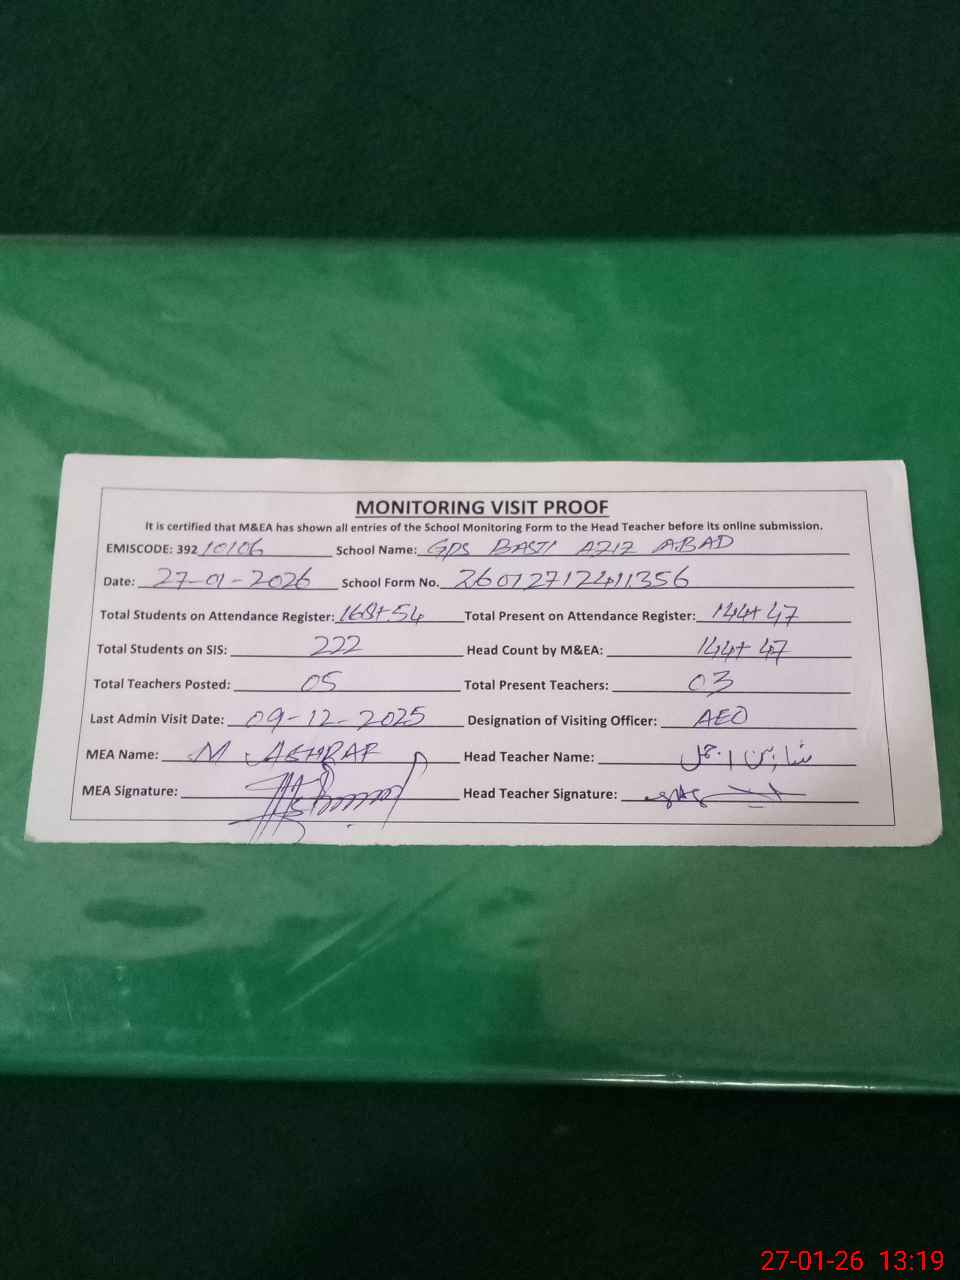 MONITORING VISIT PROOF
It is certified that M&EA has shown all entries of the School Monitoring Form to the Head Teacher before its online submission.
EMISCODE: 392 10106 School Name: GPS BASTI AZIZ ABAD
Date: 27-01-2026 School Form No. 26012712411356
Total Students on Attendance Register: 168+54 Total Present on Attendance Register: 144+47
Total Students on SIS: 222 Head Count by M&EA: 144+47
Total Teachers Posted: 05 Total Present Teachers: 03
Last Admin Visit Date: 09-12-2025 Designation of Visiting Officer: AEO
MEA Name: M. ASHRAF Head Teacher Name: شاہین اجمل
MEA Signature: Head Teacher Signature:
27-01-26 13:19